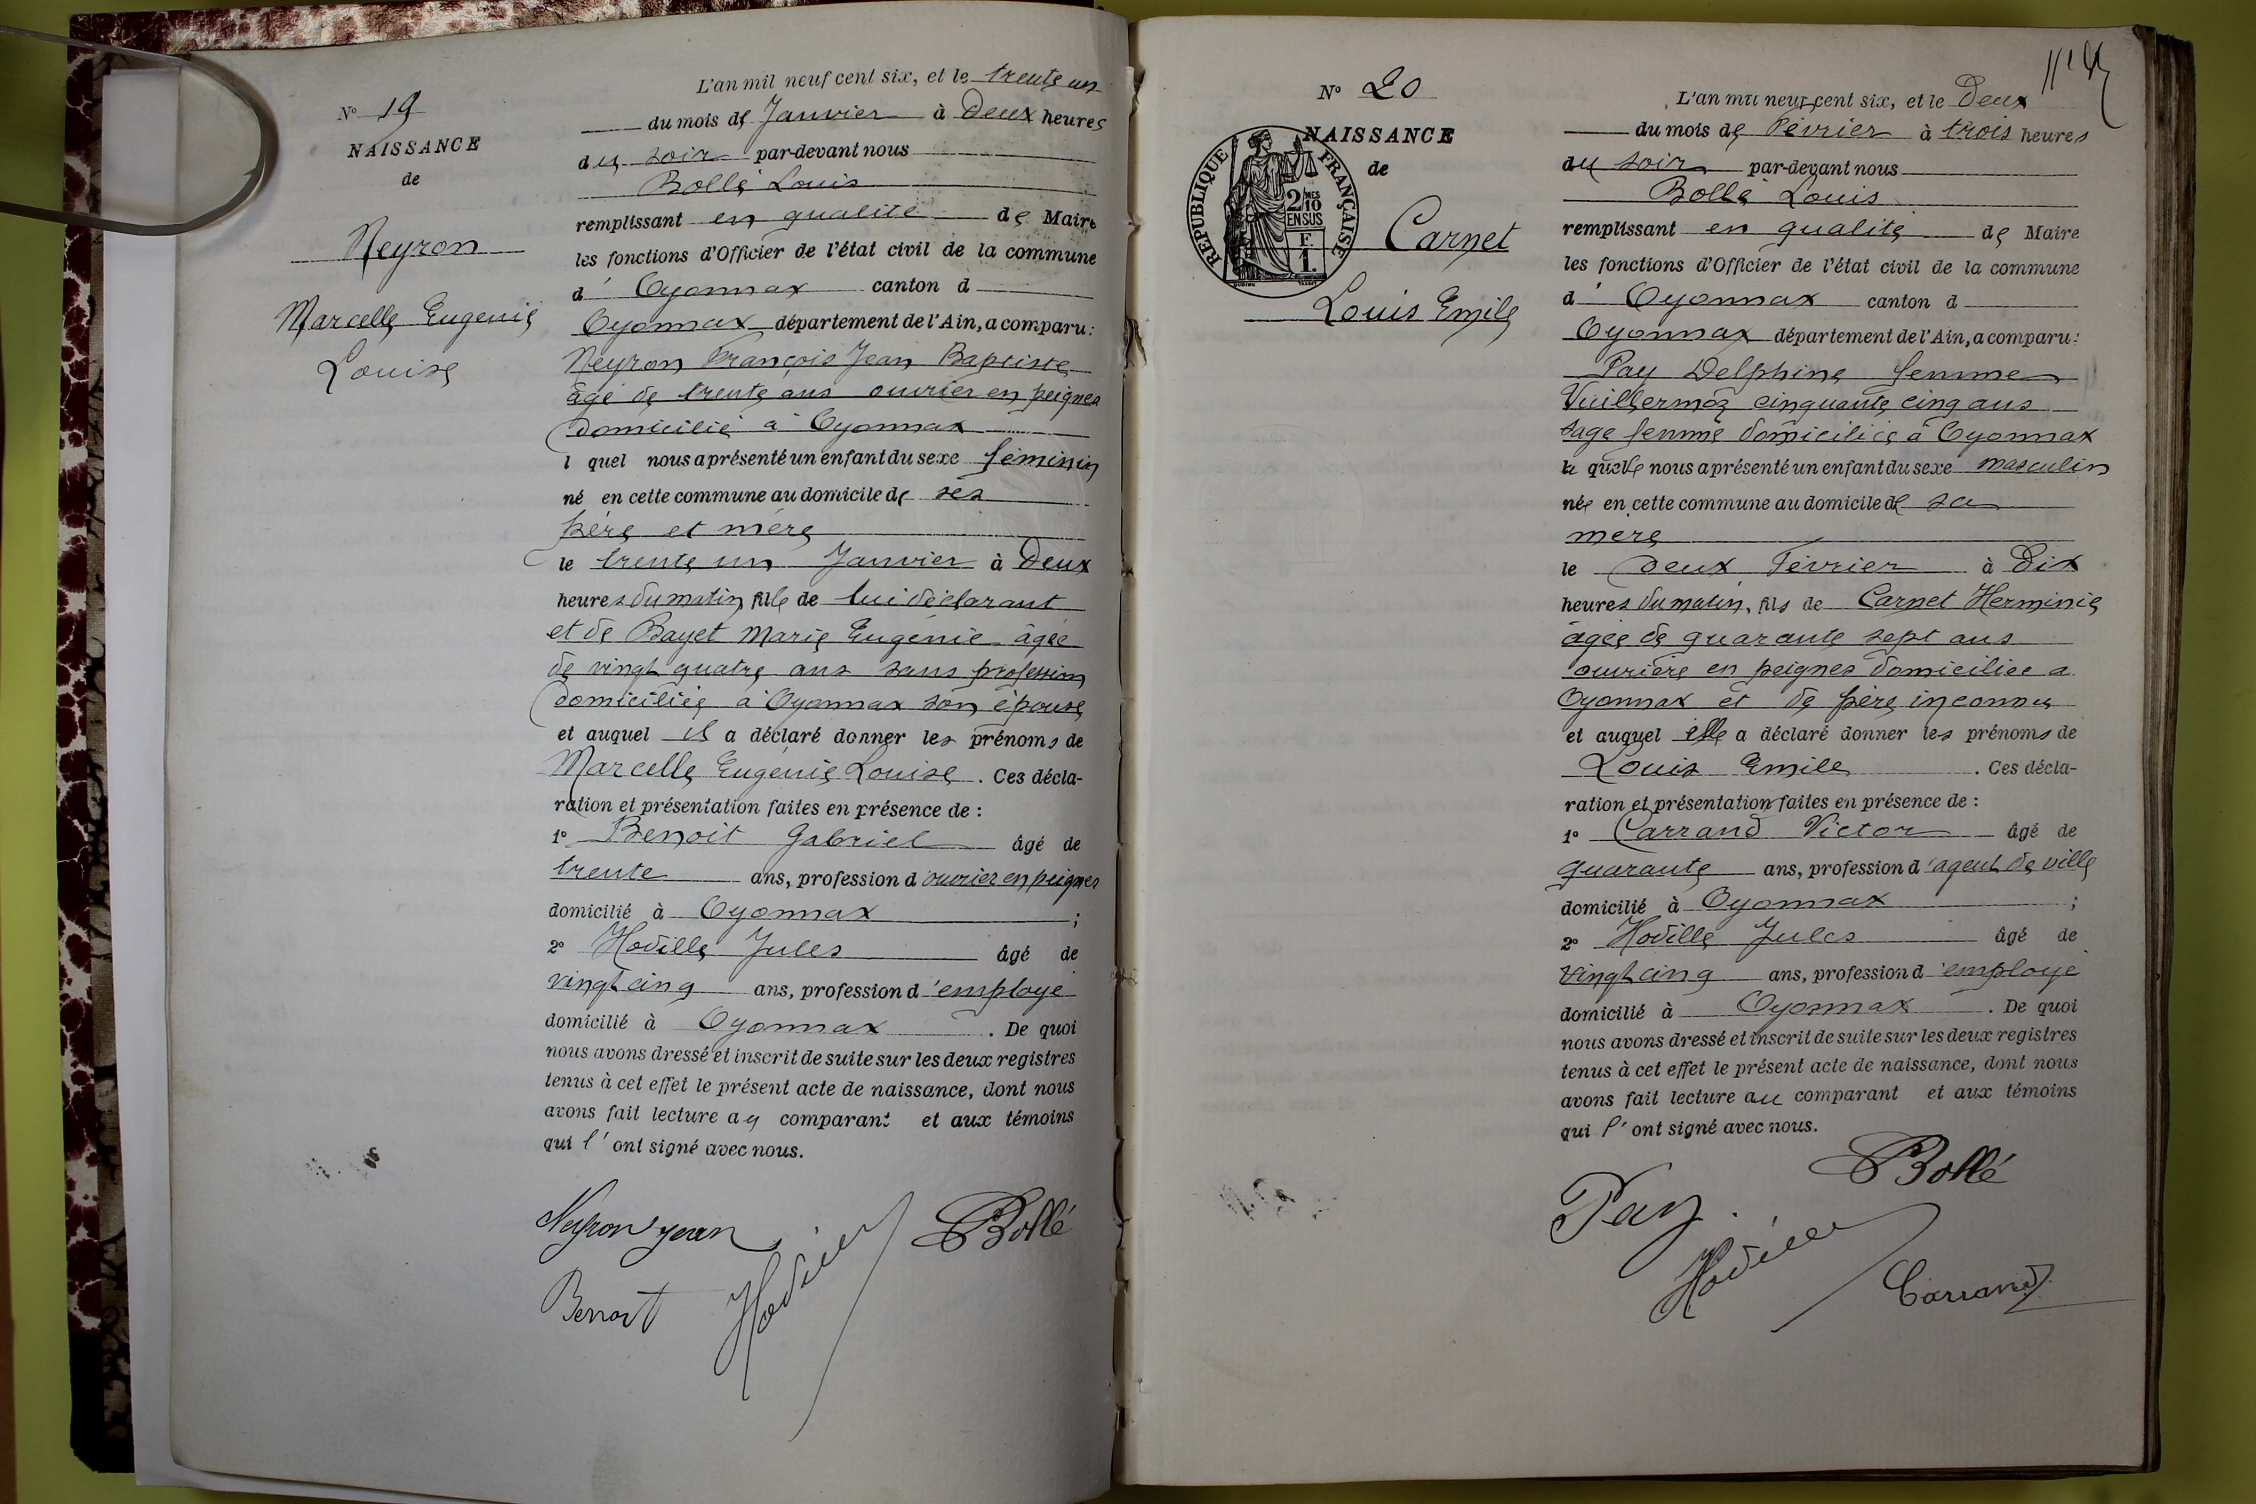 L'an mil neuf cent six, et le trente un
N° 19
du mois de Janvier à Deux heures
NAISSANCE
du soir par-devant nous
de
Bollé Louis
remplissant en qualité de Maire
Neyron
les fonctions d'Officier de l'état civil de la commune
d' Oyonnax canton d
Marcelle Eugenie
Oyonnax département de l'Ain, a comparu :
Louise
Neyron François Jean Baptiste
âgé de trente ans ouvrier en peignes
domicilié à Oyonnax
l quel nous a présenté un enfant du sexe féminin
né en cette commune au domicile de ses
père et mère
le trente un Janvier à Deux
heures du matin, fille de lui déclarant
et de Bayet Marie Eugénie âgée
de vingt quatre ans sans profession
domiciliée à Oyonnax son épouse
et auquel il a déclaré donner les prénoms de
Marcelle Eugénie Louise . Ces décla-
ration et présentation faites en présence de :
1° Benoit Gabriel âgé de
trente ans, profession d'ouvrier en peignes
domicilié à Oyonnax ;
2° Hoville Jules âgé de
vingt cinq ans, profession d'employé
domicilié à Oyonnax . De quoi
nous avons dressé et inscrit de suite sur les deux registres
tenus à cet effet le présent acte de naissance, dont nous
avons fait lecture au comparant et aux témoins
qui l'ont signé avec nous.
Neyron Jean
Bollé
Benoit
N° 20
L'an mil neuf cent six, et le Deux
du mois de Février à trois heures
NAISSANCE
du soir par-devant nous
de
RÉPUBLIQUE FRANÇAISE
2/10 MES
EN SUS
F.
1.
Bollé Louis
remplissant en qualité de Maire
Carnet
les fonctions d'Officier de l'état civil de la commune
d' Oyonnax canton d
Louis Emile
Oyonnax département de l'Ain, a comparu :
Pay Delphine femme
Vuillermoz cinquante cinq ans
sage femme domiciliée à Oyonnax
la quelle nous a présenté un enfant du sexe masculin
née en cette commune au domicile de sa
mère
le Deux Février à Dix
heures du matin, fils de Carnet Herminie
âgée de quarante sept ans
ouvrière en peignes domiciliée a
Oyonnax et de père inconnu
et auquel elle a déclaré donner les prénoms de
Louis Emile . Ces décla-
ration et présentation faites en présence de :
1° Carrand Victor âgé de
quarante ans, profession d'agent de ville
domicilié à Oyonnax ;
2° Hoville Jules âgé de
vingt cinq ans, profession d'employé
domicilié à Oyonnax . De quoi
nous avons dressé et inscrit de suite sur les deux registres
tenus à cet effet le présent acte de naissance, dont nous
avons fait lecture au comparant et aux témoins
qui l'ont signé avec nous.
Bollé
Pay
Carrand